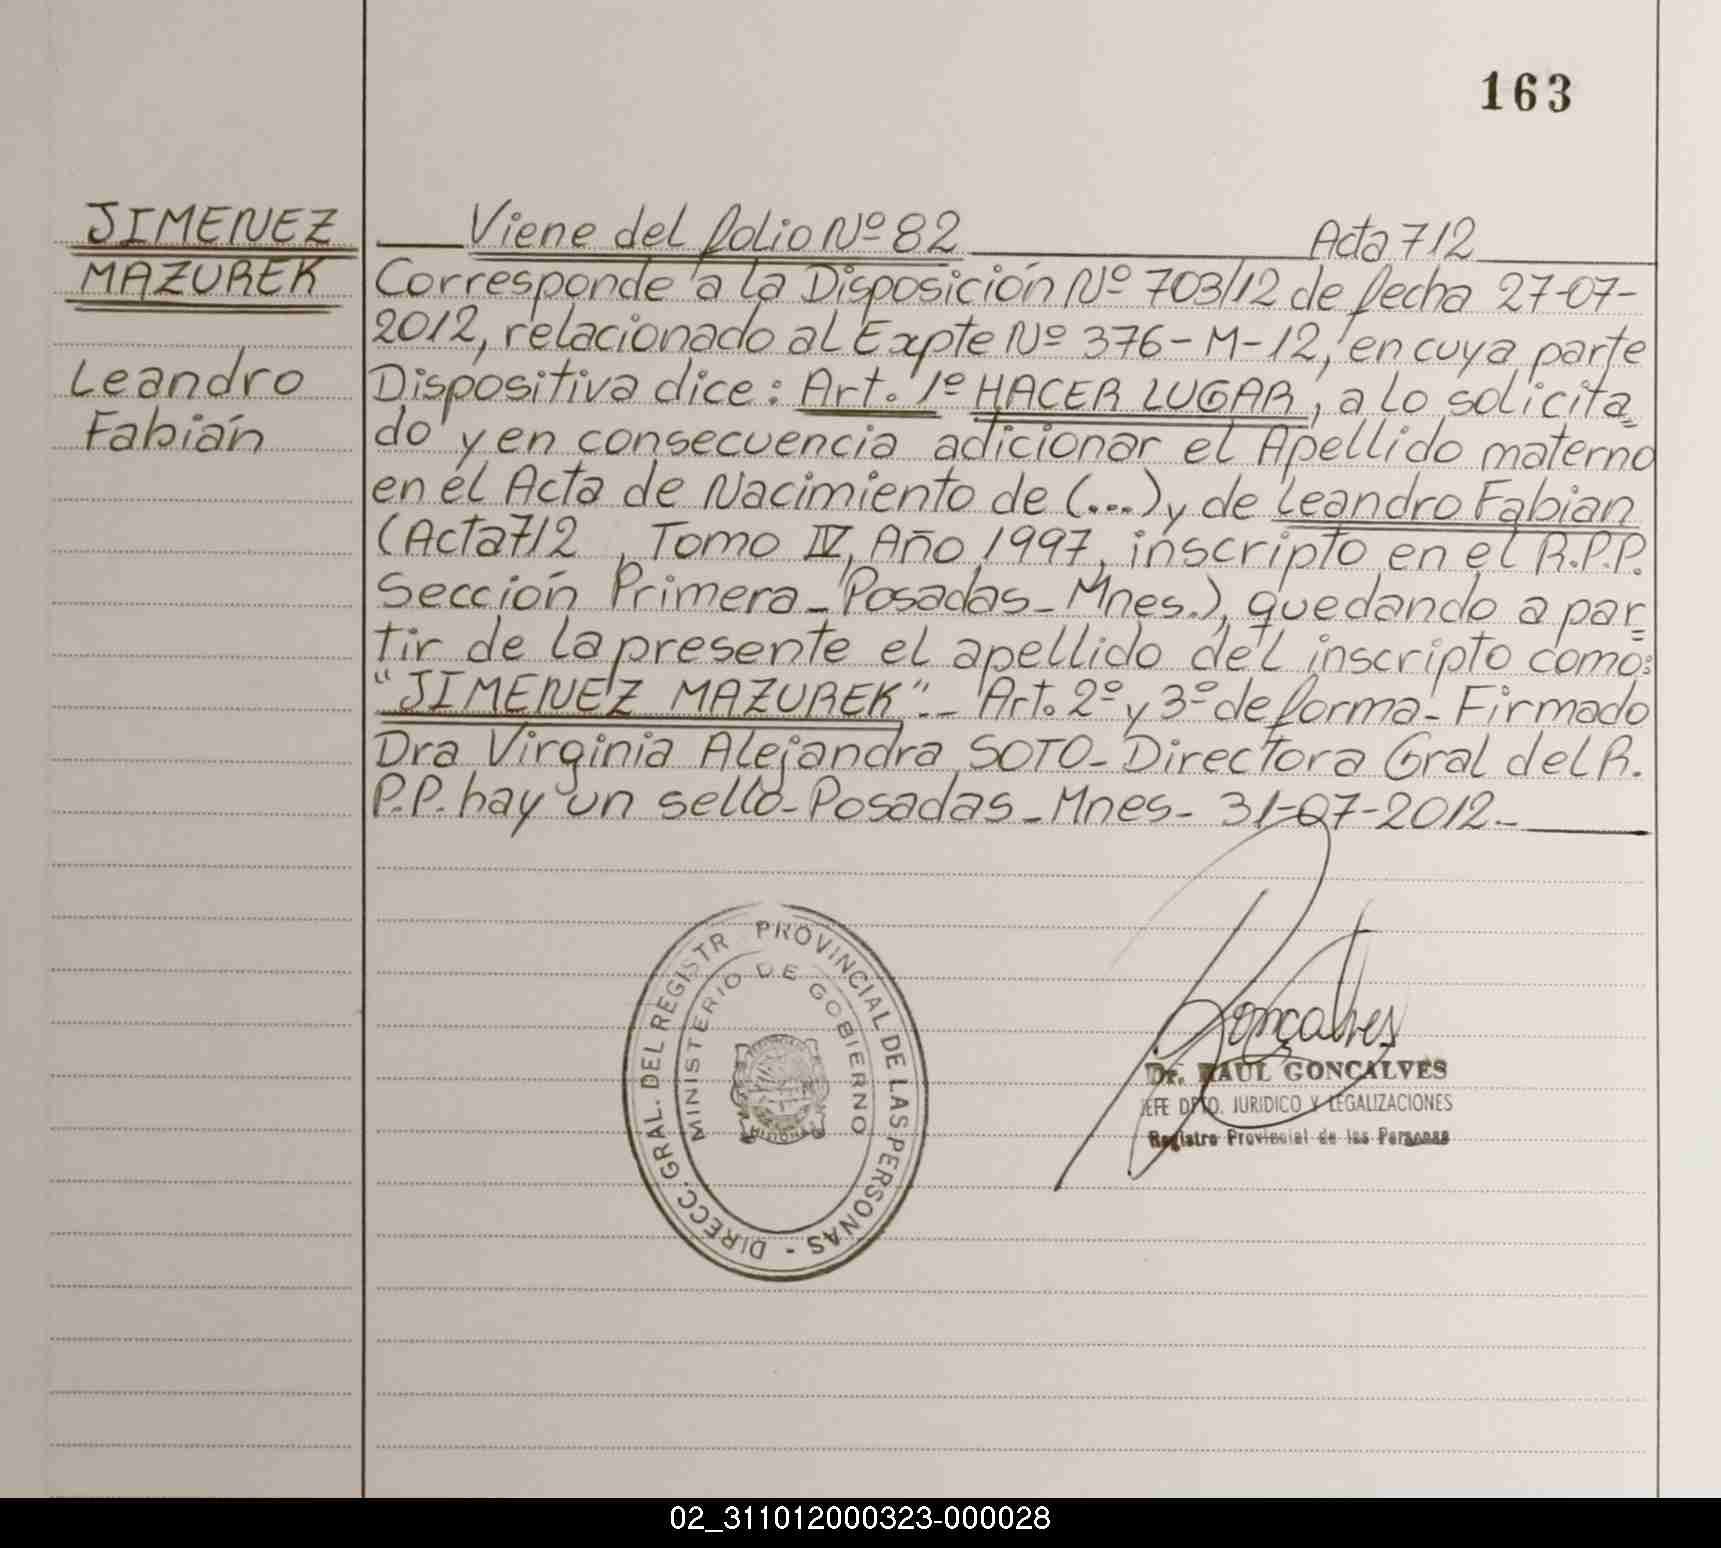 163
JIMENEZ
MAZUREK
Leandro
Fabián
Viene del folio Nº 82 Acta 712
Corresponde a la Disposición Nº 703/12 de fecha 27-07-
2012, relacionado al Expte Nº 376-M-12, en cuya parte
Dispositiva dice: Art. 1º HACER LUGAR, a lo solicita=
do y en consecuencia adicionar el Apellido materno
en el Acta de Nacimiento de (...) y de Leandro Fabian
(Acta 712 , Tomo IV, Año 1997, inscripto en el R.P.P.
Sección Primera_Posadas_Mnes.), quedando a par=
tir de la presente el apellido del inscripto como:
"JIMENEZ MAZUREK"._ Art. 2º y 3º de forma_ Firmado
Dra Virginia Alejandra SOTO_Directora Gral del R.
P.P. hay un sello_Posadas_Mnes_ 31-07-2012._
DIRECC. GRAL. DEL REGISTR PROVINCIAL DE LAS PERSONAS -
MINISTERIO DE GOBIERNO
MISIONES
Gonçalves
Dr. RAUL GONCALVES
JEFE DPTO. JURIDICO Y LEGALIZACIONES
Registro Provincial de las Personas
02_311012000323-000028